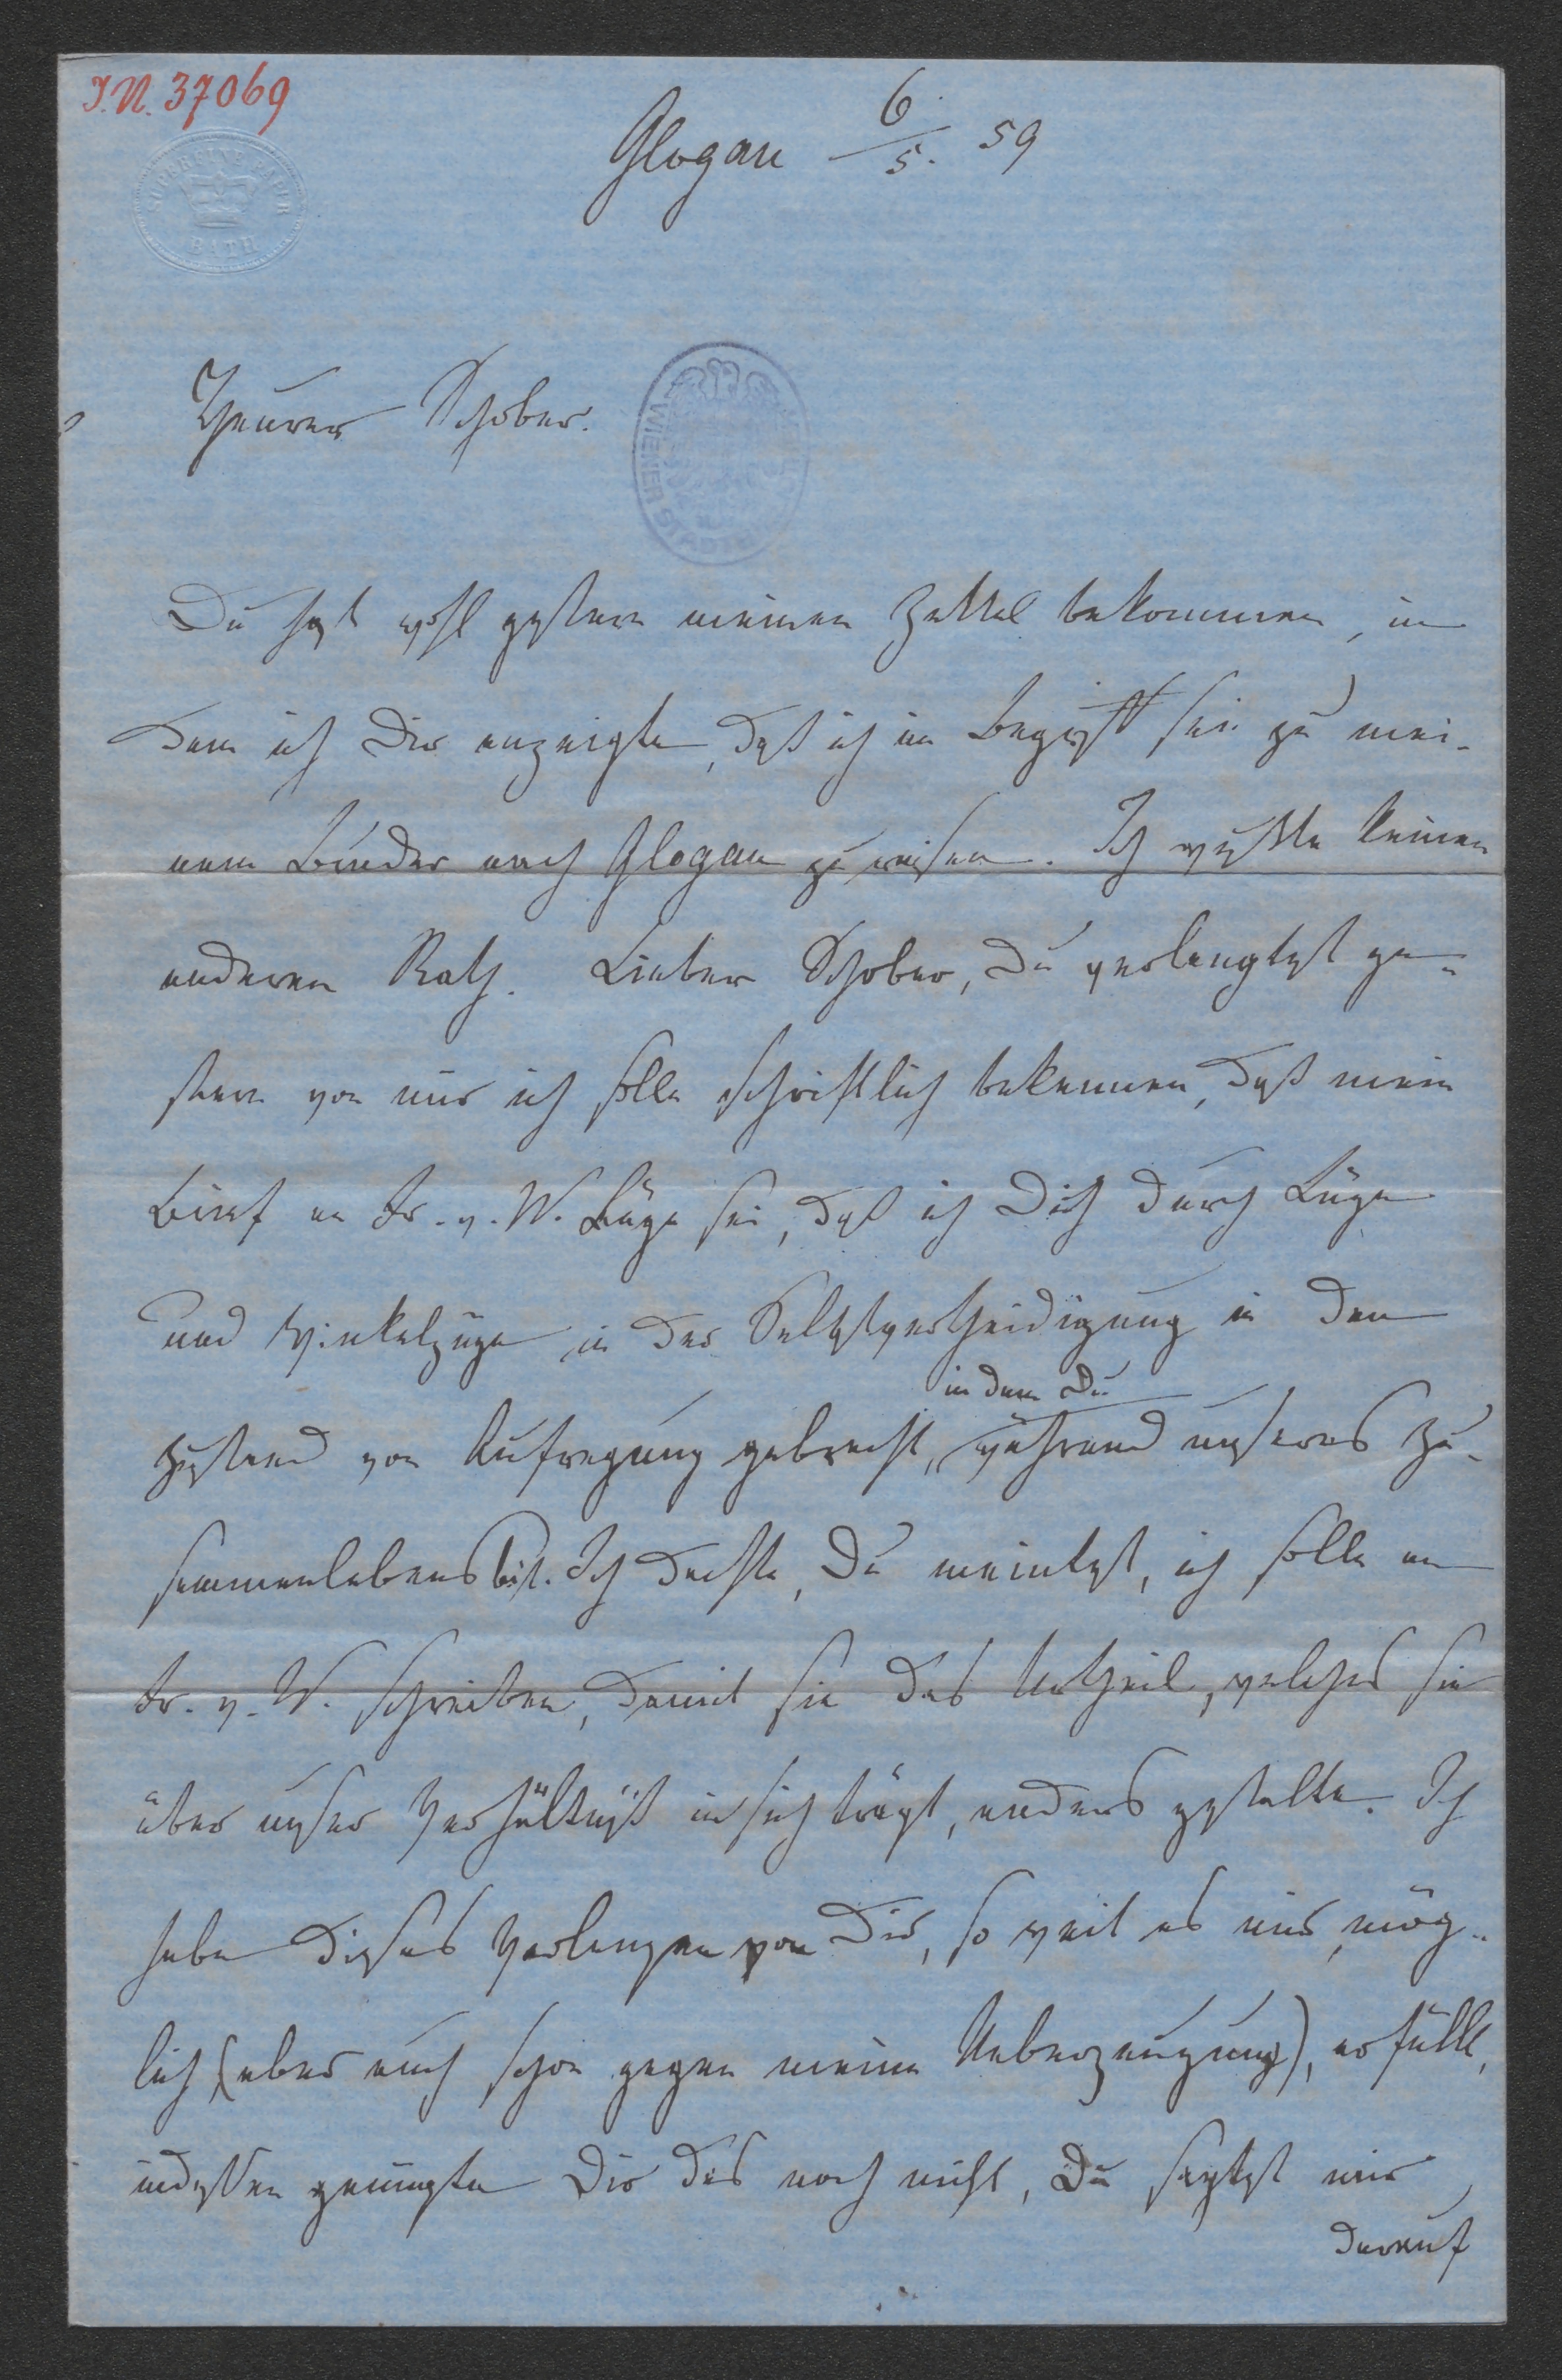 I.N. 37069
SUPERFINE PAPER
BATH
Glogau 6/5. 59
Theurer Schober.
WIENER STADTB
Du hast wohl gestern meinen Zettel bekommen, in
dem ich Dir anzeigte, daß ich im Begriff sei zu mei-
nem Bruder nach Glogau zu reisen. Ich wußte keinen
anderen Rath. Lieber Schober, Du verlangtest ge-
stern von mir ich solle schriftlich bekennen, daß mein
Brief an Fr. v. W. Lüge sei, daß ich Dich durch Lüge
und Winkelzüge in der Selbstvertheidigung in den
in dem Du
Zustand von Aufregung gebracht, während unseres Zu-
sammenlebens bist. Ich dachte, Du meintest, ich solle an
Fr. v. W. schreiben, damit sie das Urtheil, welches sie
über unser Verhältniß in sich trägt, anders gestalte. Ich
habe dieses Verlangen von Dir, so weit es mir mög-
lich (aber auch schon gegen meine Ueberzeugung), erfüllt,
indessen genügte Dir das noch nicht, Du sagtest mir
darauf